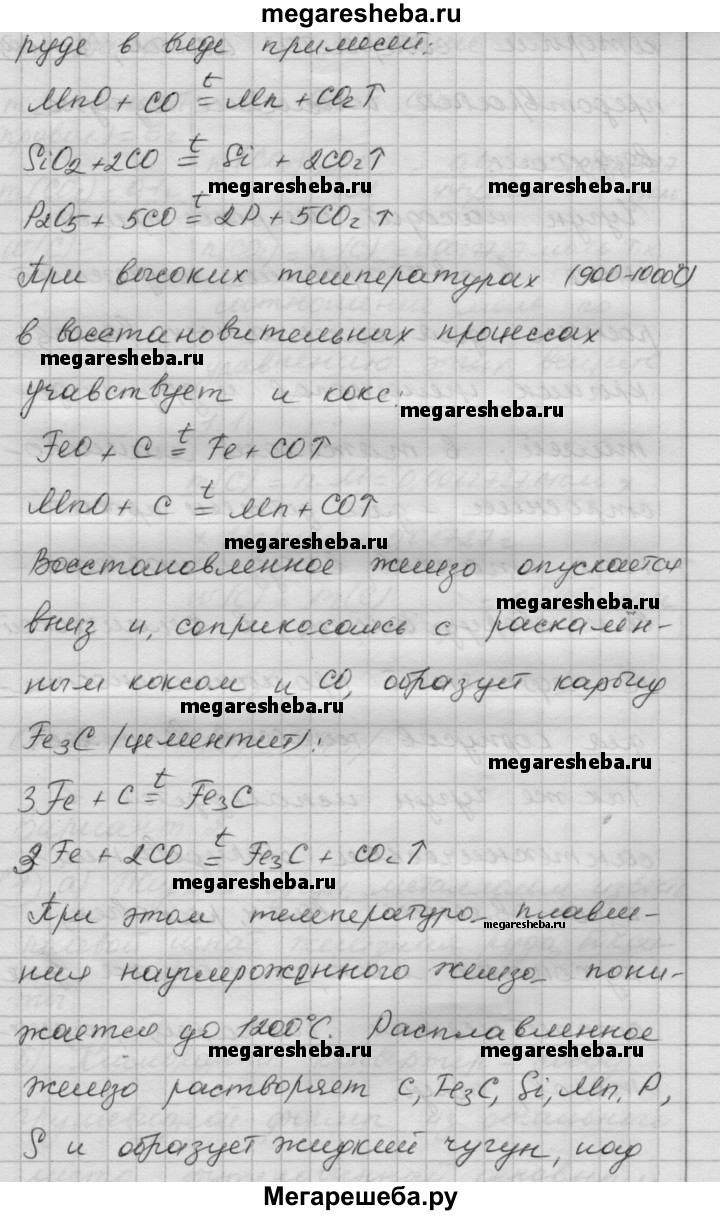 megaresheba.ru
руде в виде примесей:
MnO + CO =t Mn + CO2↑
SiO2 + 2CO =t Si + 2CO2↑
megaresheba.ru megaresheba.ru
P2O5 + 5CO =t 2P + 5CO2↑
При высоких температурах (900-1000°C)
в восстановительных процессах
megaresheba.ru
учавствует и кокс:
megaresheba.ru
FeO + C =t Fe + CO↑
MnO + C =t Mn + CO↑
megaresheba.ru
Восстановленное железо опускается
megaresheba.ru
вниз и, соприкосаясь с раскалён-
ным коксом и CO, образует карбид
megaresheba.ru
Fe3C (цементит):
megaresheba.ru
3Fe + C =t Fe3C
3Fe + 2CO =t Fe3C + CO2↑
megaresheba.ru
При этом температура плавле-
megaresheba.ru
ния науглероженного железа пони-
жается до 1200°C. Расплавленное
megaresheba.ru megaresheba.ru
железо растворяет C, Fe3C, Si, Mn, P,
S и образует жидкий чугун, над
Мегарешеба.ру